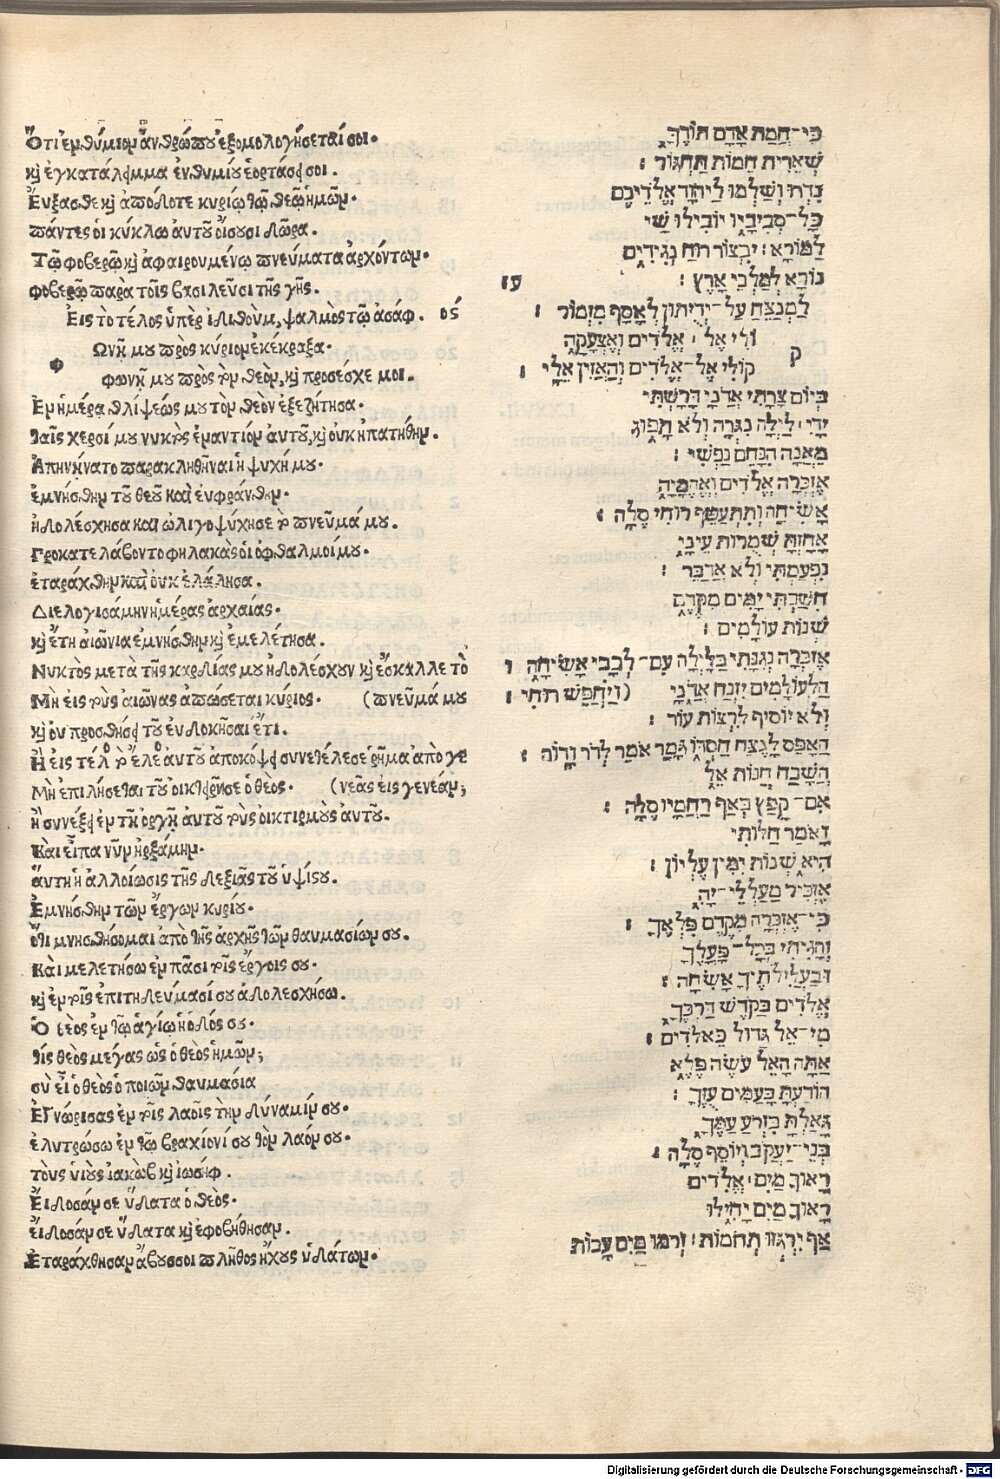 Ὅτι ἐνθύμιον ἀνθρώπου ἐξομολογήσεταί σοι.
κỳ ἐγκατάλειμμα ἐνθυμίου ἑορτάσει σοι.
Εὔξασθε κỳ ἀπόδοτε κυρίῳ τῷ θεῷ ἡμῶν.
πάντες οἱ κύκλω αὐτοῦ οἴσουσι δῶρα.
Τῷ φοβερῷ κỳ ἀφαιρουμένω πνεύματα ἀρχόντων.
φοβερῷ παρὰ τοῖς βασιλεῦσι τῆς γῆς.
Εἰς τὸ τέλος ὑπὲρ ἰδιθούμ, ψαλμὸς τῷ ἀσάφ. ος
Φ Ωνῇ μου πρὸς κύριον ἐκέκραξα.
φωνῇ μου πρὸς τὸν θεὸν, κỳ προσέσχε μοι.
Ἐν ἡμέρα θλίψεώς μου τὸν θεὸν ἐξεζήτησα.
ταῖς χερσί μου νυκτὸς ἐναντίον αὐτοῦ, κỳ οὐκ ἠπατήθην.
Ἀπηνήνατο παρακληθῆναι ἡ ψυχή μου.
ἐμνήσθην τοῦ θεοῦ καὶ ἐυφράνθην.
ἠδολέσχησα καὶ ὠλιγοψύχησε τὸ πνεῦμά μου.
Προκατελάβοντο φηλακὰς οἱ ὀφθαλμοί μου.
ἐταράχθην καὶ οὐκ ἐλάλησα.
Διελογισάμην ἡμέρας ἀρχαίας.
κỳ ἔτη αἰώνια ἐμνήσθην κỳ ἐμελέτησα.
Νυκτὸς μετὰ τῆς καρδίας μου ἠδολέσχουν κỳ ἔσκαλλε τὸ
Μὴ εἰς τοὺς αἰῶνας ἀπώσεται κύριος. (πνεῦμά μου
κỳ οὐ προσθήσει τοῦ ἐυδοκῆσαι ἔτι.
Ἢ εἰς τέλος τὸ ἔλεος αὐτοῦ ἀποκόψει συνετέλεσε ῥῆμα ἀπὸ γε
Μὴ ἐπιλήσεται τοῦ οἰκτειρῆσαι ὁ θεὸς. (νεᾶς εἰς γενεάν;
ἢ συνέξει ἐν τῇ ὀργῇ αὐτοῦ τοὺς οἰκτιρμοὺς ἀυτοῦ.
Καὶ εἶπα νῦν ἠρξάμην.
ἅυτη ἡ ἀλλοίωσις τῆς δεξιᾶς τοῦ ὑψίστου.
Ἐμνήσθην τῶν ἔργων κυρίου.
ὅτι μνησθήσομαι ἀπὸ τῆς ἀρχῆς τῶν θαυμασίων σου.
Καὶ μελετήσω ἐν πᾶσι τοῖς ἔργοις σου.
κỳ ἐν τοῖς ἐπιτηδεύμασί σου ἀδολεσχήσω.
Ὁ θεὸς ἐν τῷ ἁγίῳ ἡ ὁδός σου.
τίς θεὸς μέγας ὡς ὁ θεὸς ἡμῶν;
σὺ εἶ ὁ θεὸς ὁ ποιῶν θαυμασία
Ἐγνώρισας ἐν τοῖς λαοῖς τὴν δύναμίν σου.
ἐλυτρώσω ἐν τῷ βραχίονί σου τὸν λαόν σου.
τοὺς υἱοὺς ἰακὼβ κỳ ἰωσήφ.
Εἴδοσάν σε ὕδατα ὁ θεὸς.
εἴδοσάν σε ὕδατα κỳ ἐφοβήθησαν.
Ἐταράχθησαν ἄβυσσοι πλῆθος ἤχους ὑδάτων.
כִּי־חֲמַת אָדָם תּוֹדֶךָּ
שְׁאֵרִית חֵמוֹת תַּחְגּוֹר׃
נִדֲרוּ וְשַׁלְּמוּ לַיהוָה אֱלֹדֵיכֶם
כָּל־סְבִיבָיו יוֹבִילוּ שַׁי
לַמּוֹרָא׃ יִבְצוֹר רוּחַ נְגִידִים
נוֹרָא לְמַלְכֵי אָרֶץ׃
עז
לַמְנַצֵּחַ עַל־יְדִיתוּן לְאָסָף מִזְמוֹר׃
ק וֹלִי אֶל־אֱלֹדִים וְאֶצְעָקָה
קוֹלִי אֶל־אֱלֹדִים וְהַאֲזִין אֵלָי׃
בְּיוֹם צָרָתִי אֲדֹנָי דָּרָשְׁתִּי
יָדִי׀ לַיְלָה נִגְּרָה וְלֹא תָפוּג
מֵאֲנָה הִנָּחֵם נַפְשִׁי׃
אֶזְכְּרָה אֱלֹדִים וְאֶהֱמָיָה
אָשִׂיחָה וְתִתְעַטֵּף רוּחִי סֶלָה׃
אָחַזְתָּ שְׁמֻרוֹת עֵינָי
נִפְעַמְתִּי וְלֹא אֲדַבֵּר׃
חִשַּׁבְתִּי יָמִים מִקֶּדֶם
שְׁנוֹת עוֹלָמִים׃
אֶזְכְּרָה נְגִנָתִי בַּלַּיְלָה עִם־לְבָבִי אָשִׂיחָה׃
הַלְעוֹלָמִים יִזְנַח אֲדֹנָי (וַיְחַפֵּשׂ רוּחִי׃
וְלֹא יוֹסִיף לִרְצוֹת עוֹד׃
הֶאָפֵס לָנֶצַח חַסְדּוֹ גָּמַר אֹמֶר לְדֹר וָדוֹר׃
הֲשָׁכַח חַנּוֹת אֵל
אִם־קָפַץ בְּאַף רַחֲמָיו סֶלָה׃
וָאֹמַר חַלּוֹתִי
הִיא שְׁנוֹת יְמִין עֶלְיוֹן׃
אֶזְכִּיר מַעַלְלֵי־יָהּ
כִּי־אֶזְכְּרָה מִקֶּדֶם פִּלְאֶךָ׃
וְהָגִיתִי בְכָל־פָּעֳלֶךָ
וּבַעֲלִילֹתֶיךָ אָשִׂחָה׃
אֱלֹדִים בַּקֹּדֶשׁ דַּרְכֶּךָ
מִי־אֵל גָּדוֹל כֵּאלֹדִים׃
אַתָּה הָאֵל עֹשֵׂה פֶלֶא
הוֹדַעְתָּ בָעַמִּים עֻזֶּךָ׃
גָּאַלְתָּ בִּזְרֹעַ עַמֶּךָ
בְּנֵי־יַעֲקֹב וְיוֹסֵף סֶלָה׃
רָאוּךָ מַּיִם׀ אֱלֹדִים
רָאוּךָ מַּיִם יָחִילוּ
אַף יִרְגְּזוּ תְהֹמוֹת׃ זֹרְמוּ מַיִם עָבוֹת
Digitalisierung gefördert durch die Deutsche Forschungsgemeinschaft - DFG